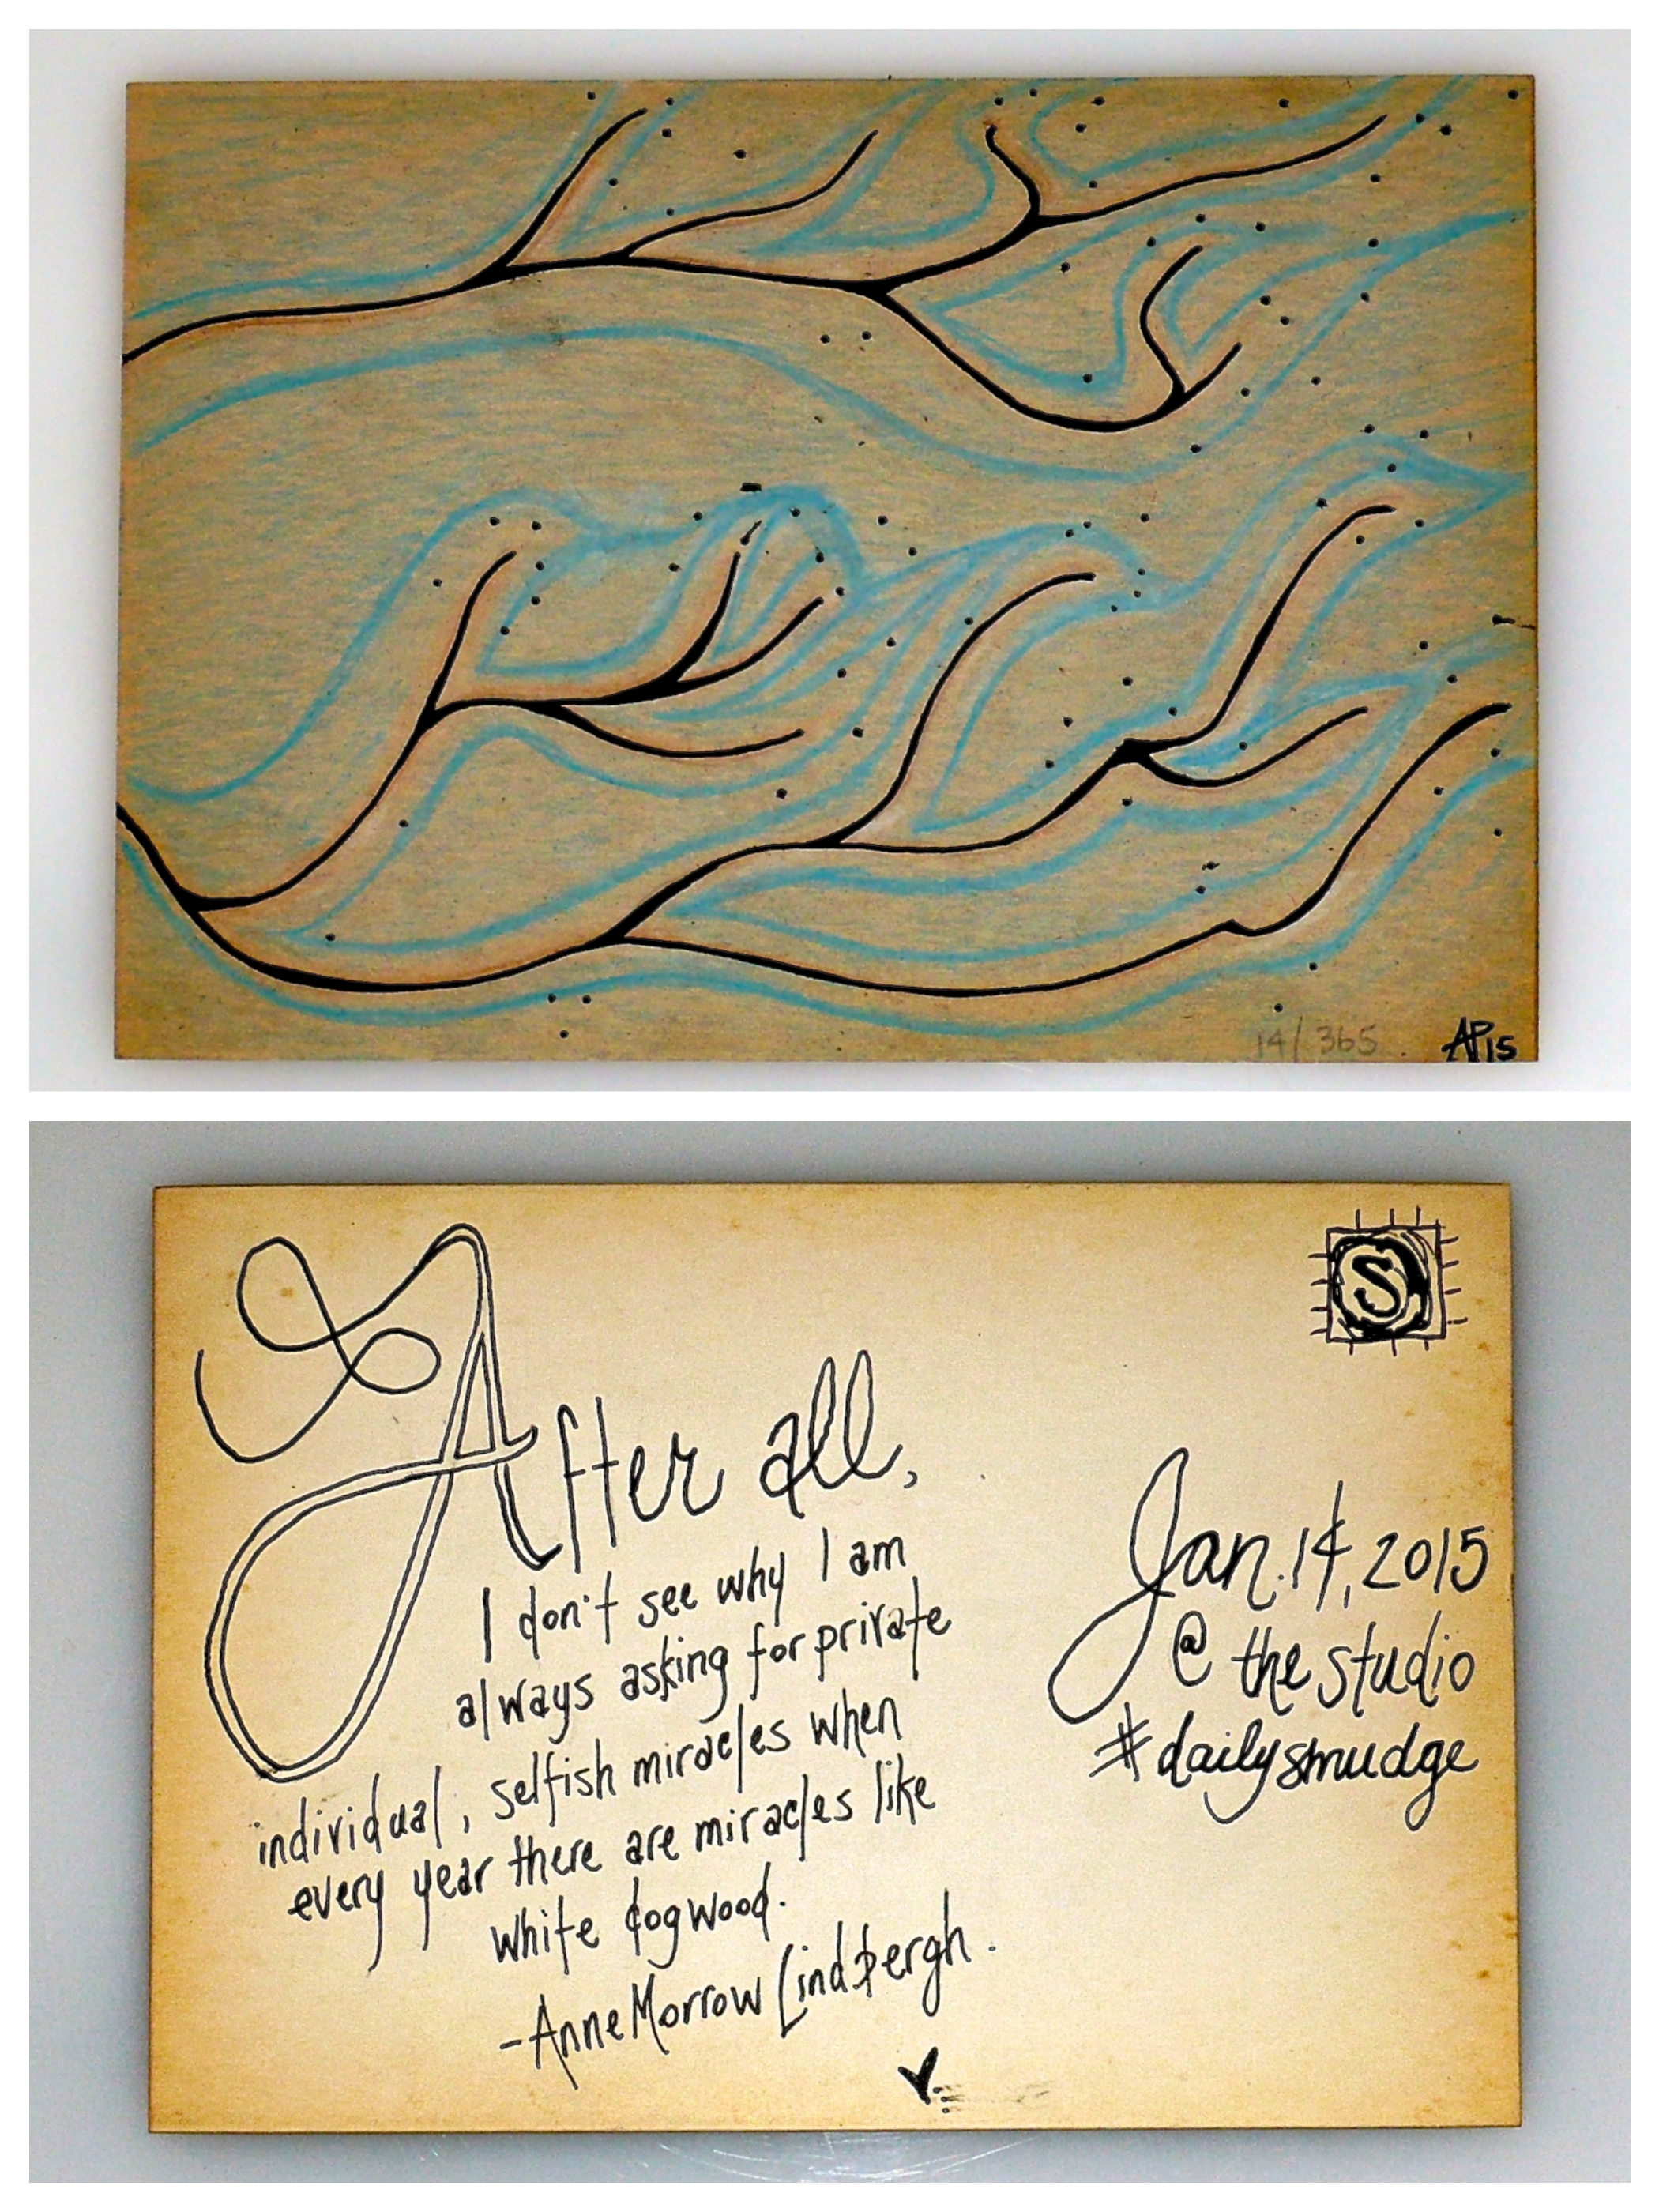 14/365.
AP15
S
After all,
I don't see why I am
always asking for private
individual, selfish miracles when
every year there are miracles like
white dogwood.
-Anne Morrow Lindbergh.
Jan. 14, 2015
@ the studio
#dailysmudge